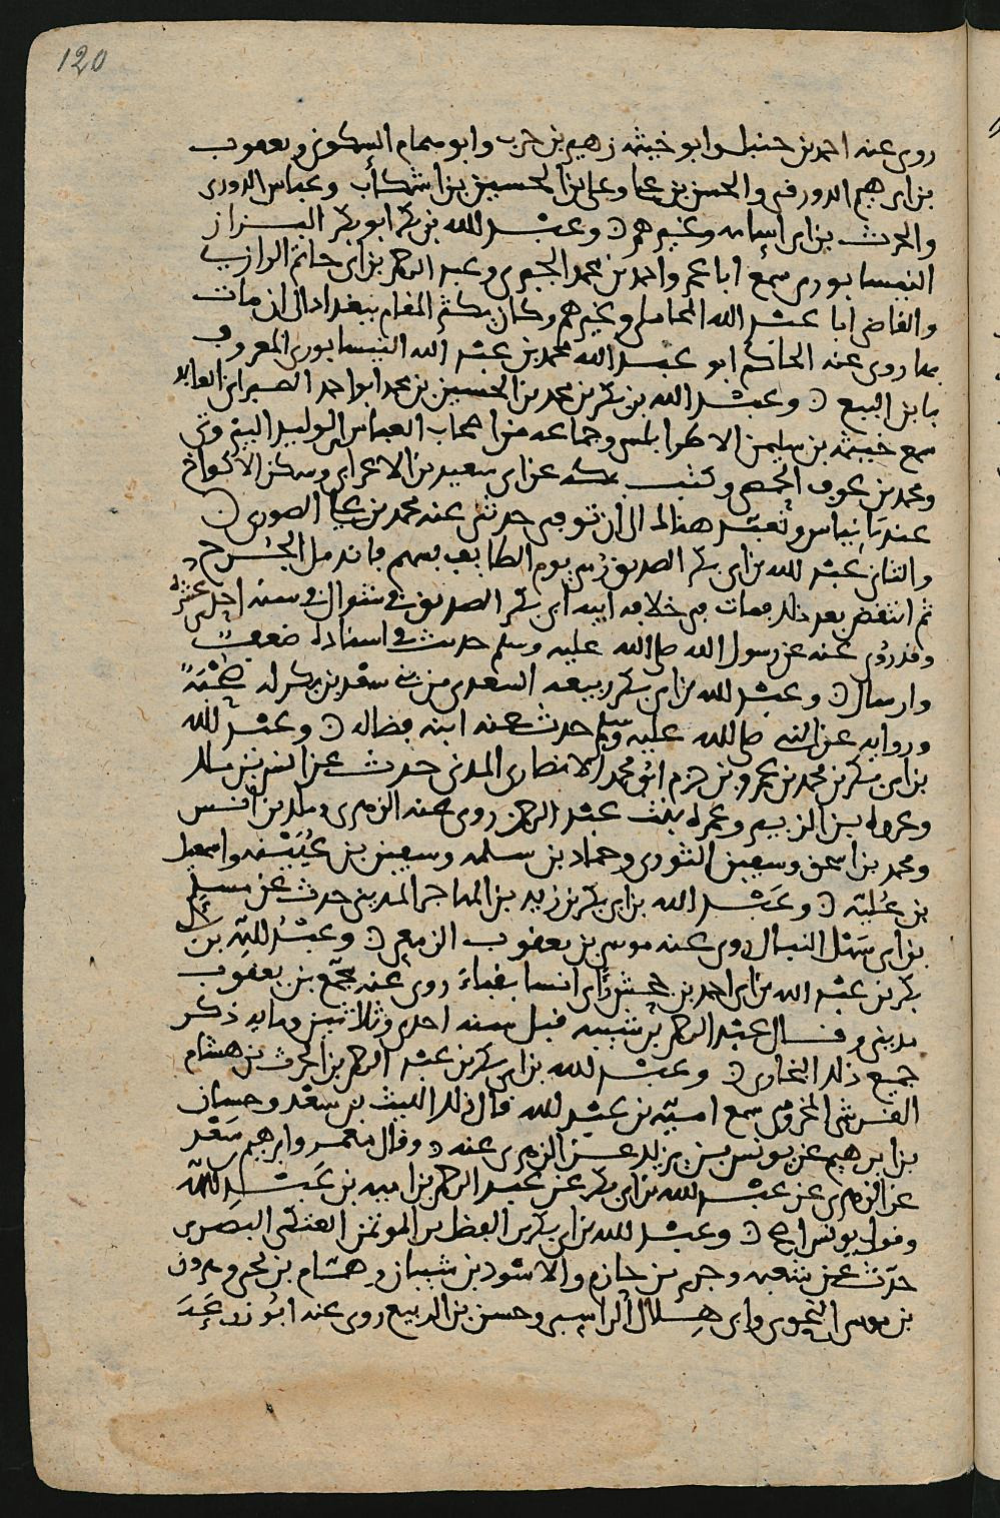 120
روى عنه احمد بن حنبل وابو خيثمه زهير بن حرب وابو همام السكونى ويعقوب
بن ابرهيم الدورقى والحسن بن على وعلى بن الحسين بن اشكاب وعباس الدورى
والحرث بن ابى اسامه وغيرهم ه وعبد الله بن بكر ابو بكر البزاز
النيسابورى سمع ابا عمر واحمد بن محمد الحيرى وعبد الرحمن بن ابى حاتم الرازى
والقاضى ابا عبد الله المحاملى وغيرهم وكان يكثر المقام ببغداد الى ان مات
بها روى عنه الحاكم ابو عبد الله محمد بن عبد الله النيسابورى المعروف
بابن البيع ه وعبد الله بن بكر بن محمد بن الحسين بن محمد ابو احمد الطبرانى العابد
سمع خيثمه بن سليمن الاطرابلسى وجماعه من اصحاب العباس بن الوليد البيروتى
ومحمد بن عوف الحمصى وكتب بمكه عن ابى سعيد بن الاعرابى وسكن الاكواخ
عند بانياس وتعبد هنالك الى ان توفى حدثنى عنه محمد بن على الصورى ه
والثانى عبد الله بن ابى بكر الصديق رمى يوم الطايف بسهم فاندمل الجرح
ثم انتقض بعد ذلك فمات فى خلافه ابيه ابى بكر الصديق فى شوال فى سنه احدى عشره
وقد روى عنه عن رسول الله صلى الله عليه وسلم حديث فى اسناده ضعف
وارسال ه وعبد الله بن ابى بكر ربيعه السعدى من بنى سعد بن بكر له صحبه
وروايه عن النبى صلى الله عليه وسلم حدث عنه ابنه فضاله ه وعبد الله
بن ابى بكر بن محمد بن عمرو بن حزم ابو محمد الانصارى المدنى حدث عن انس بن ملك
وعروه بن الزبير وعمره بنت عبد الرحمن روى عنه الزهرى وملك بن انس
ومحمد بن اسحق وسفين الثورى وحماد بن سلمه وسفين بن عيينه واسمعيل
بن عليه ه وعبد الله بن ابى بكر بن زيد بن المهاجر المدينى حدث عن مسلم
بن ابى سهل النبال روى عنه موسى بن يعقوب الزمعى ه وعبد الله بن ابى
بكر بن عبد الله بن ابى احمد بن جحش راى انسا بقباء روى عنه مجمع بن يعقوب
مدينى وقال عبد الرحمن بن شيبه قتل سنه احدى وثلاثين ومايه ذكر
جميع ذلك البخارى ه وعبد الله بن ابى بكر بن عبد الرحمن بن الحرث بن هشام
القرشى المخزومى سمع اميه بن عبد الله قال ذلك الليث بن سعد وحسان
بن ابرهيم عن يونس بن يزيد عن الزهرى عنه ه وقال معمر وابرهيم سعد
عن الزهرى عن عبد الله بن ابى بكر عن عبد الرحمن بن اميه بن عبد الله
وقول يونس اصح ه وعبد الله بن ابى بكر بن الفضل بن الموتمن العتكى البصرى
حدث عن شعبه وجرير بن حازم والاسود بن شيبان وهشام بن وهرون
بن موسى النحوى وابى هلال الراسبى وحسن بن الربيع روى عنه ابو زرعه